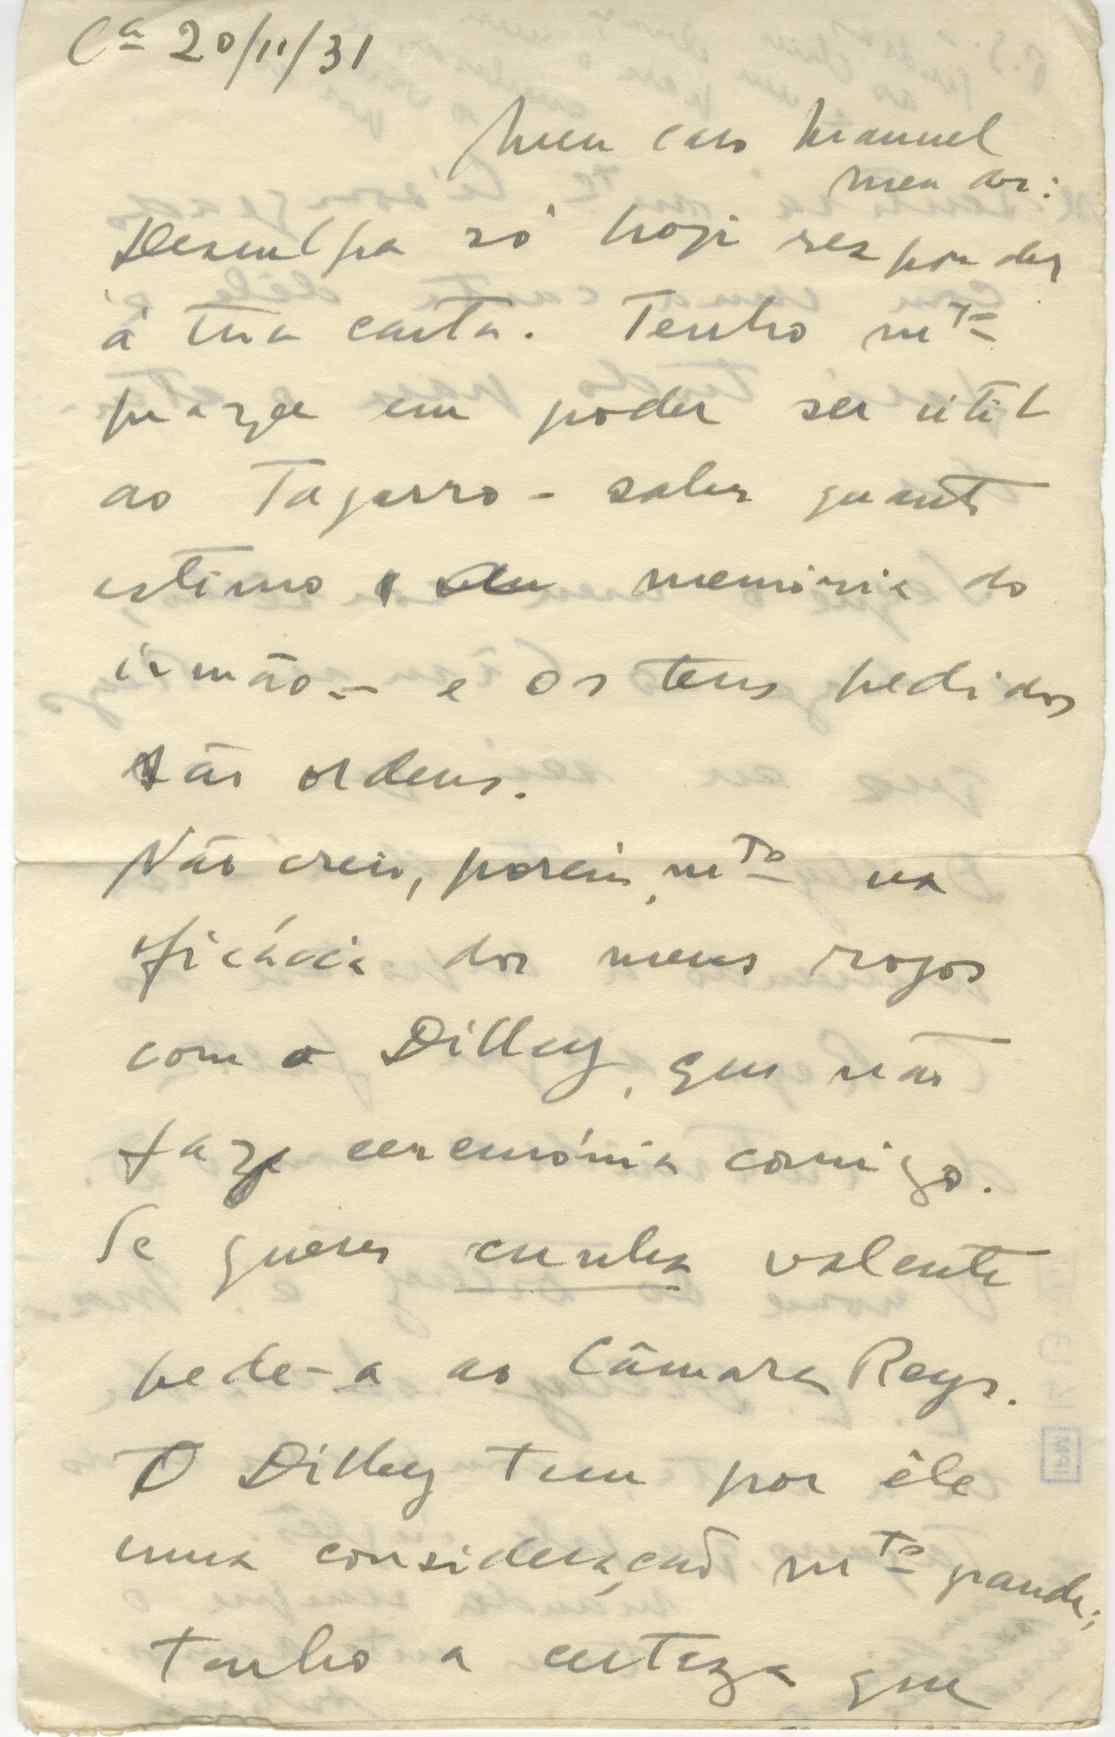 Cª 20/11/31
Meu caro Manuel
Mendes:
Desculpa só hoje responder
á tua carta. Tenho mto
prazer em poder ser util
ao Tagarro - sabes quanto
estimo a memória do
irmão - e os teus pedidos
são ordens.
Não creio, porém, mto na
eficácia dos meus rogos
com o Dilley, que não
faz ceremónia comigo.
Se queres cunha valente
pede-a ao Câmara Reys.
O Dilley tem por êle
uma consideração mto grande;
tenho a certeza que